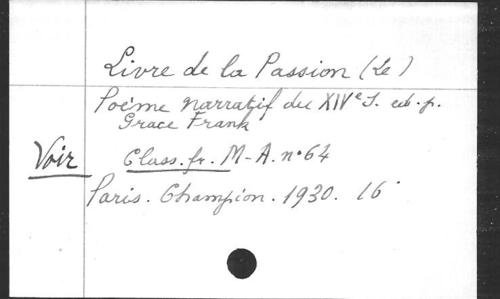 Livre de la Passion (Le)
Poème narratif du XIVe S. éd. p.
Grace Frank
Voir Class. fr. M-A. n° 64
Paris. Champion. 1930. 16°